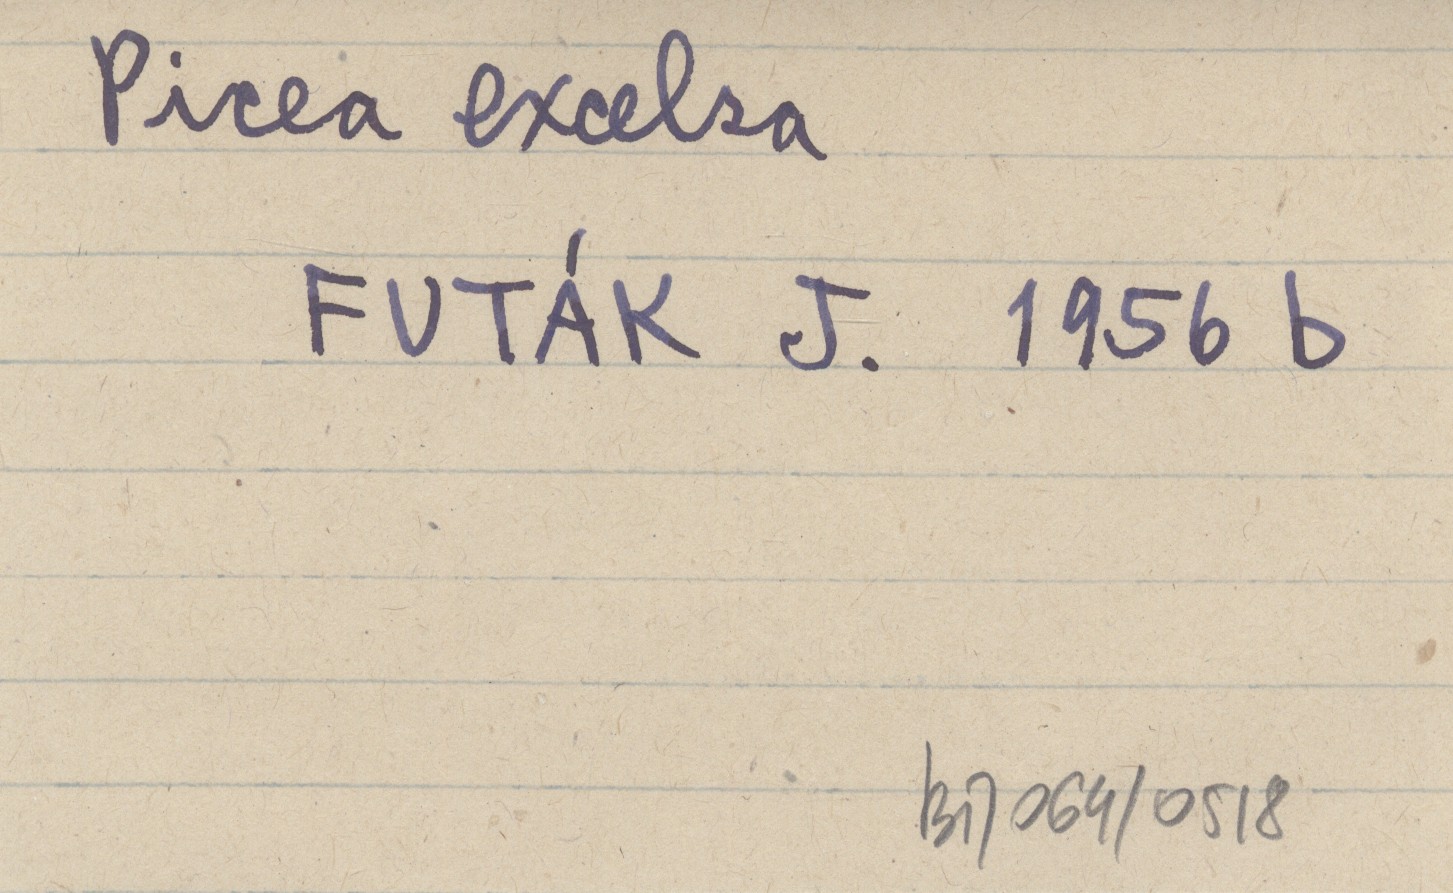 Picea excelsa
FUTÁK J. 1956 b
064/0518